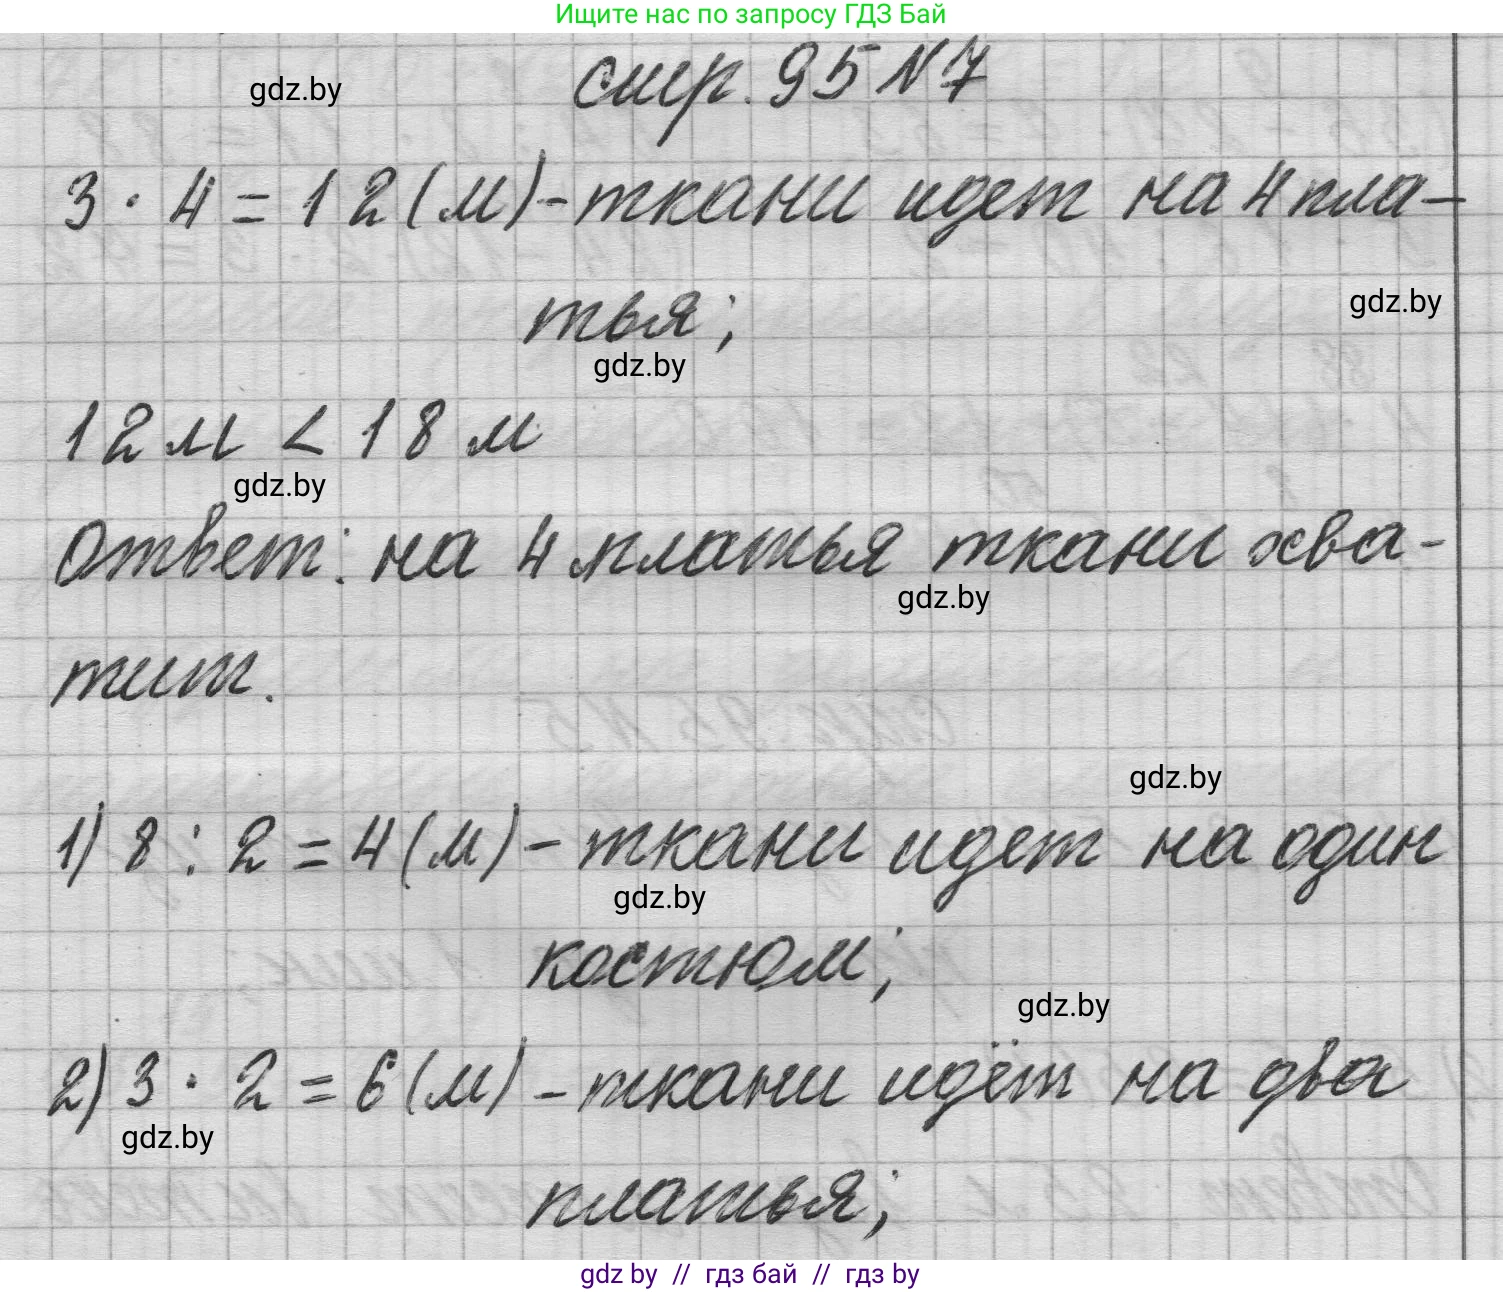 Ищите нас по запросу ГДЗ Бай
стр. 95 N 7
gdz.by
3 · 4 = 12 (м) - ткани идет на 4 пла-
тья;
gdz.by
gdz.by
12 м < 18 м
gdz.by
Ответ: на 4 платья ткани хва-
gdz.by
тит.
gdz.by
1) 8 : 2 = 4 (м) - ткани идет на один
gdz.by
костюм;
gdz.by
2) 3 · 2 = 6 (м) - ткани идёт на два
gdz.by
платья;
gdz by // гдз бай // гдз by